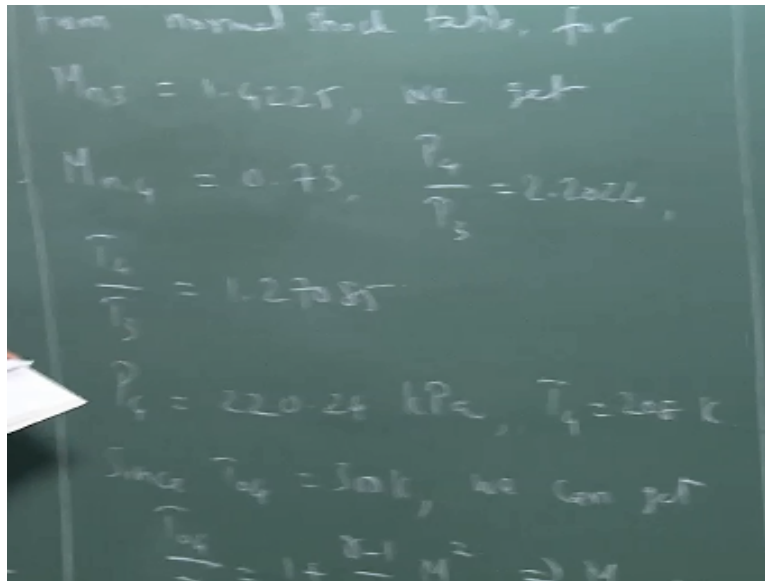 From normal shock table, for
M_n3 = 1.4225, we get
M_n4 = 0.73, P_4/P_3 = 2.2024,
T_4/T_3 = 1.27085
P_4 = 220.24 kPa, T_4 = 207 K
Since T_04 = 300K, we can get
T_04/ = 1 + γ-1/ M² ⇒ M